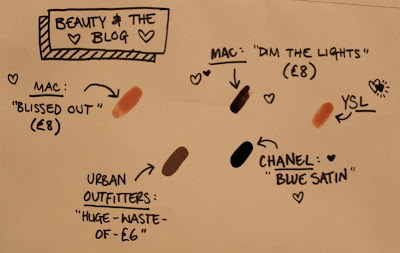 BEAUTY & THE
BLOG
MAC: "DIM THE LIGHTS"
(£8)
MAC:
"BLISSED OUT"
(£8)
YSL
URBAN
OUTFITTERS:
"HUGE-WASTE-
OF-£6"
CHANEL:
"BLUE SATIN"